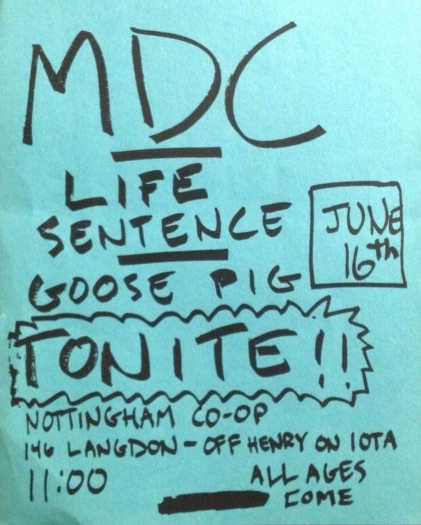 MDC
LIFE
SENTENCE
JUNE
16th
GOOSE PIG
TONITE!!
NOTTINGHAM CO-OP
146 LANGDON - OFF HENRY ON IOTA
11:00
ALL AGES
COME